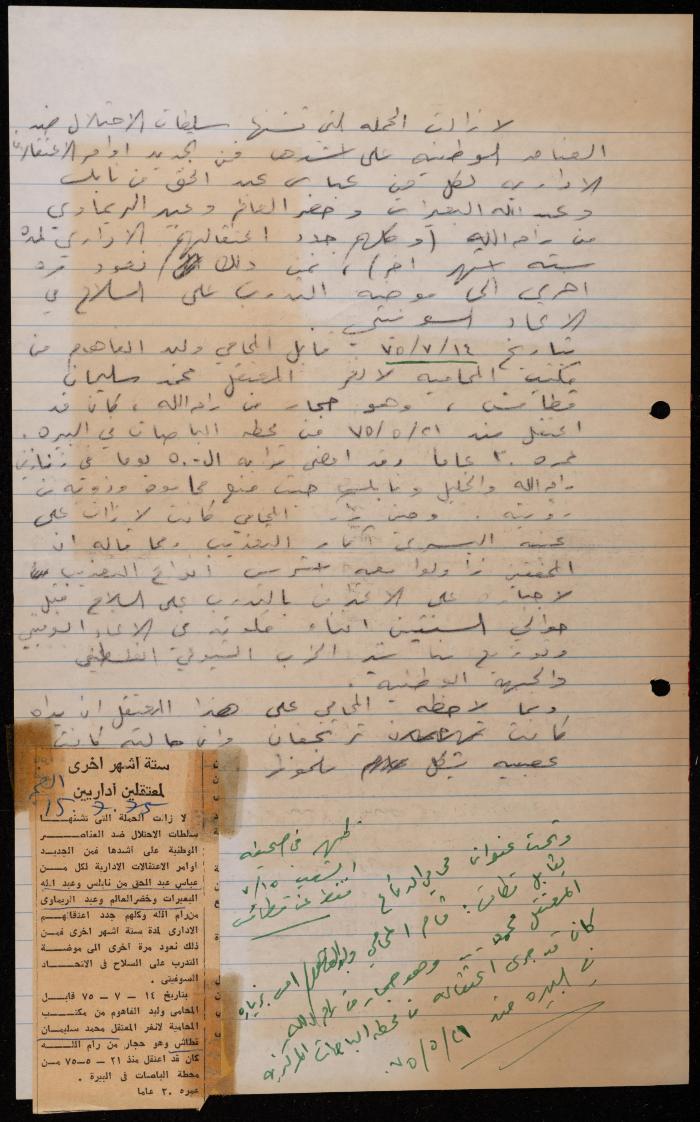 لا زالت الحمله التي تشنها سلطات الاحتلال ضد
العناصر الوطنيه على اشدها فمن الجديد اوامر الاعتقالات
الاداريه لكل من عباس عبد الحق من نابلس
وعبد الله البعيرات وخضر العالم وعبد الريماوي
من رام الله (وكلهم جدد اعتقالهم الاداري لمدة
سته اشهر اخر)، فمن ذلك نعود مره
اخرى الى موضه التدرب على السلاح في
الاتحاد السوفيتي.
بتاريخ ٧٥/٧/١٤ قابل المحامي وليد الفاهوم من
مكتب المحاميه لانغر المعتقل محمد سليمان
قطاش، وهو حجار من رام الله، كان قد
اعتقل منذ ٧٥/٥/٢١ من محطه الباصات في البيره.
عمره ٣٠ عاما وقد امضى قرابه ال ٥٠ يوما في زنازين
رام الله والخليل ونابلس حيث منع محاموه وذووه من
رؤيته. وحين المحامي كانت لا زالت على
عينه اليسرى اثار التعذيب ومما قاله ان
المحققين زاولوا معه اشرس انواع التعذيب
لاجباره على الاعتراف بالتدرب على السلاح قبل
حوالي السنتين اثناء في الاتحاد السوفيتي
وتوزيع الحزب الشيوعي الفلسطيني
والجبهة الوطنيه.
ومما لاحظه المحامي على هذا المعتقل ان يداه
كانت ترتجفان وان حالته كانت
عصبيه بشكل ملحوظ
ستة اشهر اخرى
لمعتقلين اداريين
لا زالت الحملة التى تشنها
سلطات الاحتلال ضد العناصر
الوطنية على أشدها فمن الجديد
أوامر الاعتقالات الادارية لكل من
عباس عبد الحق من نابلس وعبد الله
البعيرات وخضر العالم وعبد الريماوى
من رام الله وكلهم جدد اعتقالهم
الادارى لمدة ستة اشهر اخرى فمن
ذلك نعود مرة اخرى الى موضة
التدرب على السلاح فى الاتحاد
السوفيتى .
بتاريخ ١٤ – ٧ – ٧٥ قابل
المحامى وليد الفاهوم من مكتب
المحامية لانغر المعتقل محمد سليمان
قطاش وهو حجار من رام الله
كان قد اعتقل منذ ٢١ – ٥ – ٧٥ من
محطة الباصات فى البيرة .
عمره ٣٠ عاما
ظهر في صحيفه
الشعب ٧/١٥
فقط عن قطاش
وتحت عنوان محامي الدفاع
يقابل قطاش: قام المحامي وليد الفاهوم امس بزياره
المعتقل محمد وهو حجار من رام الله
كان قد جرى اعتقاله من محطه الباصات المركزيه
في البيره منذ ٧٥/٥/٢١